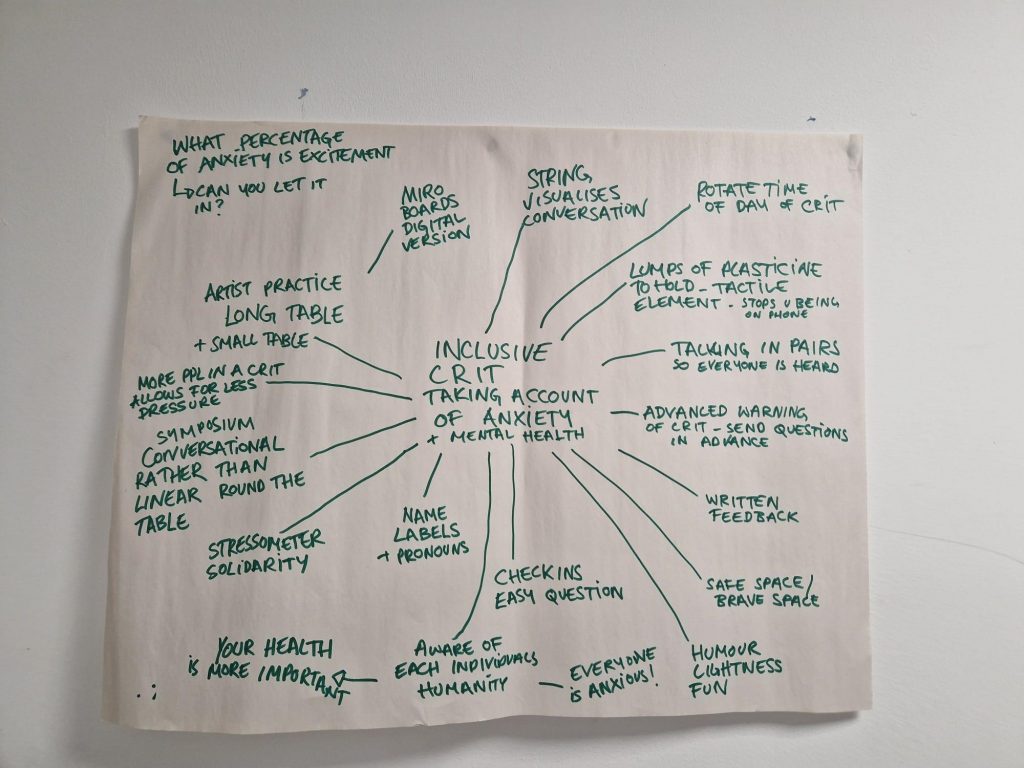 WHAT PERCENTAGE
OF ANXIETY IS EXCITEMENT
↳ CAN YOU LET IT
IN?
MIRO
BOARDS
DIGITAL
VERSION
STRING
VISUALISES
CONVERSATION
ROTATE TIME
OF DAY OF CRIT
LUMPS OF PLASTICINE
TO HOLD - TACTILE
ELEMENT - STOPS U BEING
ON PHONE
ARTIST PRACTICE
LONG TABLE
+ SMALL TABLE
INCLUSIVE
CRIT
TAKING ACCOUNT
OF ANXIETY
+ MENTAL HEALTH
TALKING IN PAIRS
SO EVERYONE IS HEARD
MORE PPL IN A CRIT
ALLOWS FOR LESS
PRESSURE
ADVANCED WARNING
OF CRIT - SEND QUESTIONS
IN ADVANCE
SYMPOSIUM
CONVERSATIONAL
RATHER THAN
LINEAR ROUND THE
TABLE
WRITTEN
FEEDBACK
STRESSOMETER
SOLIDARITY
NAME
LABELS
+ PRONOUNS
CHECK INS
EASY QUESTION
SAFE SPACE/
BRAVE SPACE
YOUR HEALTH
IS MORE IMPORTANT
AWARE OF
EACH INDIVIDUALS
HUMANITY
EVERYONE
IS ANXIOUS!
HUMOUR
LIGHTNESS
FUN